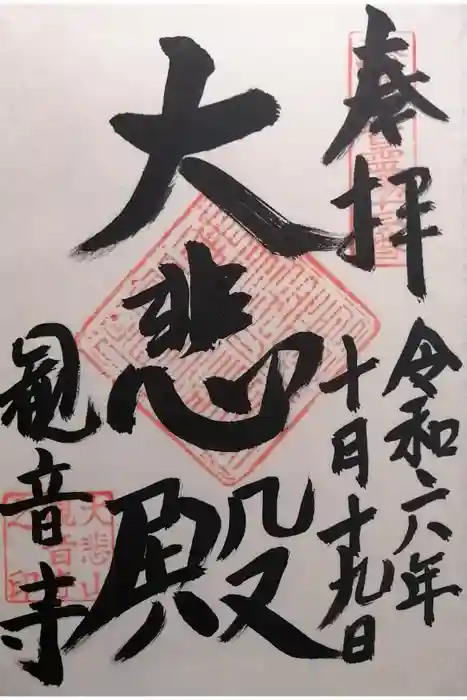 奉拝
令和六年
十月十九日
大悲殿
観音寺
大悲山
観音寺
之印